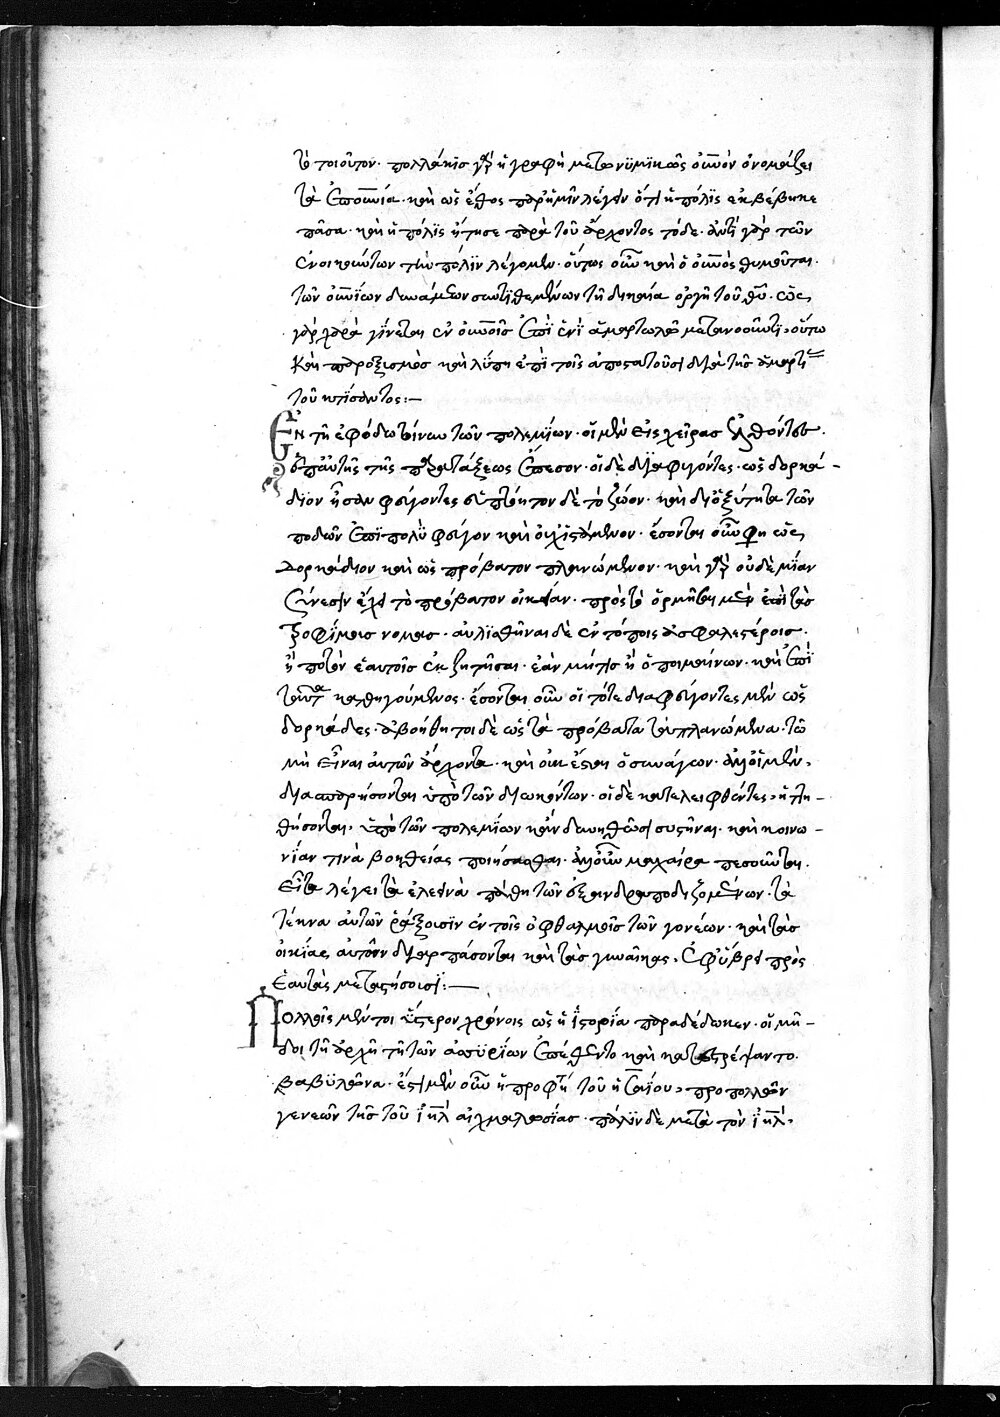 τὸ τοιοῦτον· πολλάκις γὰρ ἡ γραφὴ μετωνϋμϊκῶς οὐνὸν ὀνομάζει
τὰ ἐπουνία· καὶ ὡς ἔθος παρ' ἡμῖν λέγειν ὅτι ἡ πόλϊς ἐκβέβηκε
πᾶσα· καὶ ἡ πόλϊς ᾔτησε παρὰ τοῦ ἄρχοντος τόδε· ἀντὶ γὰρ τῶν
ἐνοικούντων τὴν πόλϊν λέγομεν· οὕτως οὖν καὶ ὁ οὐνὸς θυμοῦται·
τῶν οὐνίων δυνάμεων συντϊθεμένων τῆ δικαία ὀργῆ τοῦ θυ· ὡς
γὰρ χαρὰ γίνεται ἐν οὐνοῖς ἐπὶ ἑνὶ ἁμαρτωλῶ μετανοοῦντϊ, οὕτω
καὶ παροξυσμὸς καὶ λύπη ἐπὶ τοῖς ἀποστατοῦσι διὰ τῆς ἁμαρτί
τοῦ κτίσαντος:—
Ἐν τῆ ἐφόδω ἐκείνων τῶν πολεμίων· οἱ μὲν εἰς χεῖρας ἐλθόντες·
ἐπ' αὐτῆς τῆς παρατάξεως ἔπεσον· οἱ δὲ διαφυγόντες· ὡς δορκά-
διον ἦσαν φεύγοντες εὐπτόητον δὲ τὸ ζῶον· καὶ δι' ὀξύτητα τῶν
ποδῶν ἐπὶ πολὺ φεῦγον καὶ οὐχ ἱστάμενον· ἔσονται οὖν φη ὡς
δορκάδιον καὶ ὡς πρόβατον πλανώμενον· καὶ γὰρ οὐδεμίαν
σύνεσιν ἔχει τὸ πρόβατον οἰκείαν· πρὸς τὸ ὁρμῆσαι μὲν ἐπὶ τὰς
τροφίμους νομάς· αὐλισθῆναι δὲ ἐν τόποις ἀσφαλεστέροις·
ἢ ποτὸν ἑαυτοῖς ἐκζητῆσαι· ἐὰν μήτις ἦ ὁ ποιμαίνων· καὶ ἐπὶ
ταῦτα καθηγούμενος· ἔσονται οὖν οἱ τότε διαφεύγοντες μὲν ὡς
δορκάδες· ἀβοήθητοι δὲ ὡς τὰ πρόβατα τὰ πλανώμενα· τῶ
μὴ εἶναι αὐτῶν ἄρχοντα· καὶ οὐκ ἔσται ὁ συνάγων· ἀλλ' οἱ μὲν,
διασπαρήσονται ὑπὸ τῶν διωκόντων· οἱ δὲ καταλειφθέντες, ἡττη-
θήσονται, ὑπὸ τῶν πολεμίων κἂν δυνηθῶσι συστῆναι· καὶ κοινω-
νίαν τινὰ βοηθείας ποιήσασθαι· ἀλλ' οὖν μαχαίρα πεσοῦνται·
Εἶτα λέγει τὰ ἐλεεινὰ πάθη τῶν ἐξανδραποδιζομένων· τὰ
τέκνα αὐτῶν ῥάξουσϊν ἐν τοῖς ὀφθαλμοῖς τῶν γονέων· καὶ τὰς
οἰκίας αὐτῶν διαρπάσονται καὶ τὰς γυναῖκας, ἐφ' ὕβρει πρὸς
ἑαυτὰς μεταστήσουσι:—
Πολλοῖς μέντοι ὕστερον χρόνοις ὡς ἡ ἱστορία παραδέδωκεν· οἱ μῆ-
δοι τῆ ἀρχῆ τῆ τῶν ἀσυρίων ἐπέθεντο καὶ κατεστρέψαντο·
βαβϋλῶνα· ἔστι μὲν οὖν ἡ προφη τοῦ ἡσαΐου, πρὸ πολλῶν
γενεῶν τῆς τοῦ ἰηλ αἰχμαλωσίας· πάλϊν δὲ μετὰ τὸν ἰηλ,